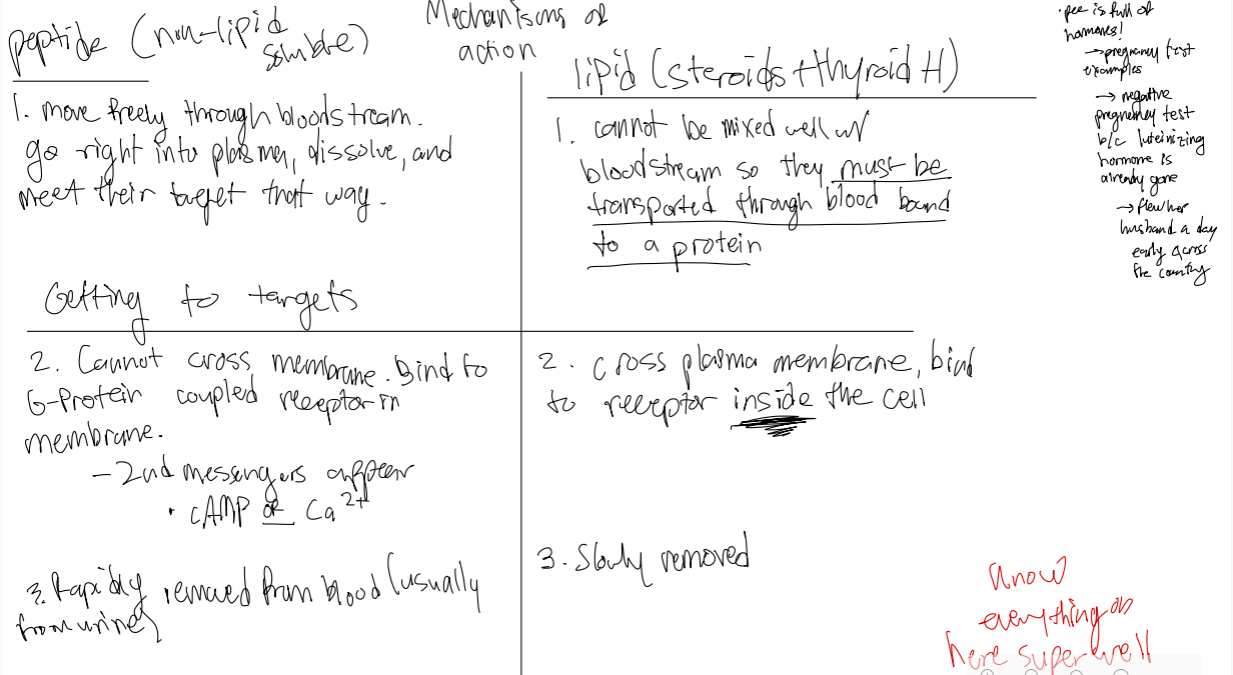 Mechanisms of
action
peptide (non-lipid
soluble)
1. move freely through bloodstream.
go right into plasma, dissolve, and
meet their target that way.
lipid (steroids + thyroid H)
1. cannot be mixed well w/
bloodstream so they must be
transported through blood bound
to a protein
Getting to targets
2. Cannot cross membrane. Bind to
G-Protein coupled receptor in
membrane.
- 2nd messengers appear
· cAMP or Ca2+
3. Rapidly removed from blood (usually
from urine)
2. cross plasma membrane, bind
to receptor inside the cell
3. Slowly removed
· pee is full of
hormones!
→ pregnancy test
examples
→ negative
pregnancy test
b/c luteinizing
hormone is
already gone
→ flew her
husband a day
early across
the country
know
everything on
here super well